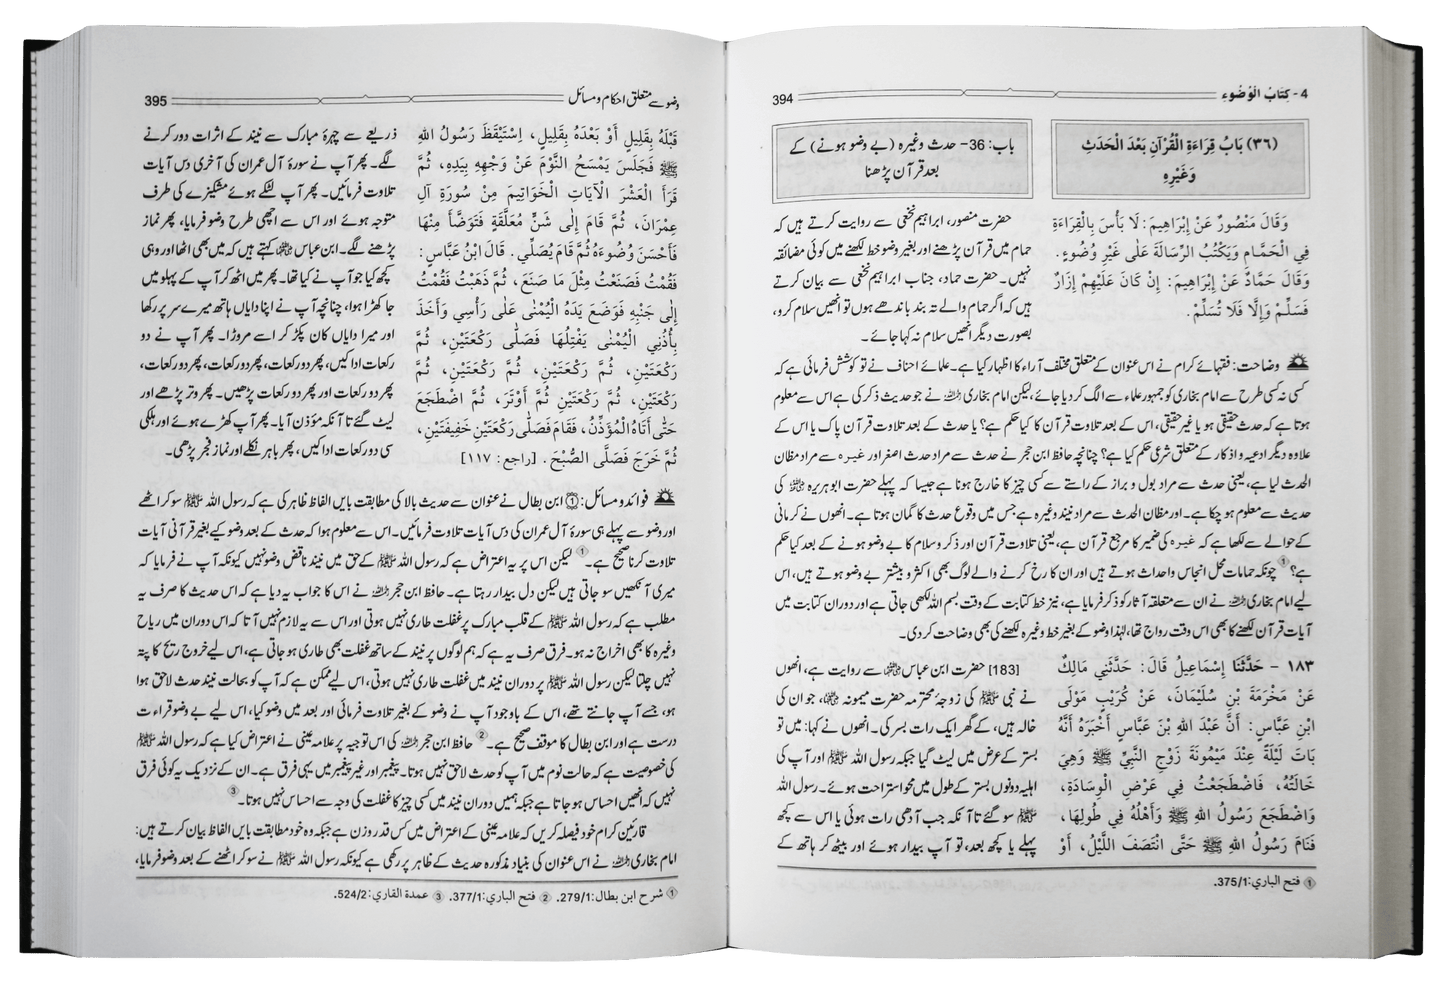 4- كِتَابُ الْوُضُوءِ
394
(٣٦) بَابُ قِرَاءَةِ الْقُرْآنِ بَعْدَ الْحَدَثِ
وَغَيْرِهِ
وَقَالَ مَنْصُورٌ عَنْ إِبْرَاهِيمَ: لَا بَأْسَ بِالْقِرَاءَةِ
فِي الْحَمَّامِ وَيَكْتُبُ الرِّسَالَةَ عَلٰى غَيْرِ وُضُوءٍ.
وَقَالَ حَمَّادٌ عَنْ إِبْرَاهِيمَ: إِنْ كَانَ عَلَيْهِمْ إِزَارٌ
فَسَلِّمْ وَإِلَّا فَلَا تُسَلِّمْ.
باب: 36- حدث وغیرہ (بے وضو ہونے) کے
بعد قرآن پڑھنا
حضرت منصور، ابراہیم نخعی سے روایت کرتے ہیں کہ
حمام میں قرآن پڑھنے اور بغیر وضو خط لکھنے میں کوئی مضائقہ
نہیں۔ حضرت حماد، جناب ابراہیم نخعی سے بیان کرتے
ہیں کہ اگر حمام والے تہ بند باندھے ہوں تو انھیں سلام کرو،
بصورت دیگر انھیں سلام نہ کہا جائے۔
وضاحت: فقہائے کرام نے اس عنوان کے متعلق مختلف آراء کا اظہار کیا ہے۔ علمائے احناف نے تو کوشش فرمائی ہے کہ
کسی نہ کسی طرح سے امام بخاری کو جمہور علماء سے الگ کر دیا جائے، لیکن امام بخاری رحمہ اللہ نے جو حدیث ذکر کی ہے اس سے معلوم
ہوتا ہے کہ حدث حقیقی ہو یا غیر حقیقی، اس کے بعد تلاوت قرآن کا کیا حکم ہے؟ یا حدث کے بعد تلاوت قرآن پاک یا اس کے
علاوہ دیگر ادعیہ و اذکار کے متعلق شرعی حکم کیا ہے؟ چنانچہ حافظ ابن حجر نے حدث سے مراد حدث اصغر اور غیرہ سے مراد مظان
الحدث لیا ہے، یعنی حدث سے مراد بول و براز کے راستے سے کسی چیز کا خارج ہونا ہے جیسا کہ پہلے حضرت ابوہریرہ رضی اللہ عنہ کی
حدیث سے معلوم ہو چکا ہے۔ اور مظان الحدث سے مراد نیند وغیرہ ہے جس میں وقوع حدث کا گمان ہوتا ہے۔ انھوں نے کرمانی
کے حوالے سے لکھا ہے کہ غیرہ کی ضمیر کا مرجع قرآن ہے، یعنی تلاوت قرآن اور ذکر و سلام کا بے وضو ہونے کے بعد کیا حکم
ہے؟ ① چونکہ حمامات محل انجاس و احداث ہوتے ہیں اور ان کا رخ کرنے والے لوگ بھی اکثر و بیشتر بے وضو ہوتے ہیں، اس
لیے امام بخاری رحمہ اللہ نے ان سے متعلقہ آثار کو ذکر فرمایا ہے، نیز خط کتابت کے وقت بسم اللہ لکھی جاتی ہے اور دوران کتابت میں
آیات قرآن لکھنے کا بھی اس وقت رواج تھا، لہٰذا وضو کے بغیر خط وغیرہ لکھنے کی بھی وضاحت کر دی۔
١٨٣ - حَدَّثَنَا إِسْمَاعِيلُ قَالَ: حَدَّثَنِي مَالِكٌ
عَنْ مَخْرَمَةَ بْنِ سُلَيْمَانَ، عَنْ كُرَيْبٍ مَوْلَى
ابْنِ عَبَّاسٍ: أَنَّ عَبْدَ اللهِ بْنَ عَبَّاسٍ أَخْبَرَهُ أَنَّهُ
بَاتَ لَيْلَةً عِنْدَ مَيْمُونَةَ زَوْجِ النَّبِيِّ ﷺ وَهِيَ
خَالَتُهُ، فَاضْطَجَعْتُ فِي عَرْضِ الْوِسَادَةِ،
وَاضْطَجَعَ رَسُولُ اللهِ ﷺ وَأَهْلُهُ فِي طُولِهَا،
فَنَامَ رَسُولُ اللهِ ﷺ حَتّٰى انْتَصَفَ اللَّيْلُ، أَوْ
[183] حضرت ابن عباس رضی اللہ عنہما سے روایت ہے، انھوں
نے نبی ﷺ کی زوجۂ محترمہ حضرت میمونہ رضی اللہ عنہا، جو ان کی
خالہ ہیں، کے گھر ایک رات بسر کی۔ انھوں نے کہا: میں تو
بستر کے عرض میں لیٹ گیا جبکہ رسول اللہ ﷺ اور آپ کی
اہلیہ دونوں بستر کے طول میں محو استراحت ہوئے۔ رسول اللہ
ﷺ سو گئے تا آنکہ جب آدھی رات ہوئی یا اس سے کچھ
پہلے یا کچھ بعد، تو آپ بیدار ہوئے اور بیٹھ کر ہاتھ کے
① فتح الباري: 375/1.
وضو سے متعلق احکام و مسائل
395
قَبْلَهُ بِقَلِيلٍ أَوْ بَعْدَهُ بِقَلِيلٍ، اِسْتَيْقَظَ رَسُولُ اللهِ
ﷺ فَجَلَسَ يَمْسَحُ النَّوْمَ عَنْ وَجْهِهِ بِيَدِهِ، ثُمَّ
قَرَأَ الْعَشْرَ الْآيَاتِ الْخَوَاتِيمَ مِنْ سُورَةِ آلِ
عِمْرَانَ، ثُمَّ قَامَ إِلٰى شَنٍّ مُعَلَّقَةٍ فَتَوَضَّأَ مِنْهَا
فَأَحْسَنَ وُضُوءَهُ ثُمَّ قَامَ يُصَلِّي. قَالَ ابْنُ عَبَّاسٍ:
فَقُمْتُ فَصَنَعْتُ مِثْلَ مَا صَنَعَ، ثُمَّ ذَهَبْتُ فَقُمْتُ
إِلٰى جَنْبِهِ فَوَضَعَ يَدَهُ الْيُمْنٰى عَلٰى رَأْسِي وَأَخَذَ
بِأُذُنِي الْيُمْنٰى يَفْتِلُهَا فَصَلّٰى رَكْعَتَيْنِ، ثُمَّ
رَكْعَتَيْنِ، ثُمَّ رَكْعَتَيْنِ، ثُمَّ رَكْعَتَيْنِ، ثُمَّ
رَكْعَتَيْنِ، ثُمَّ رَكْعَتَيْنِ ثُمَّ أَوْتَرَ، ثُمَّ اضْطَجَعَ
حَتّٰى أَتَاهُ الْمُؤَذِّنُ، فَقَامَ فَصَلّٰى رَكْعَتَيْنِ خَفِيفَتَيْنِ،
ثُمَّ خَرَجَ فَصَلَّى الصُّبْحَ. [راجع: ١١٧]
ذریعے سے چہرۂ مبارک سے نیند کے اثرات دور کرنے
لگے۔ پھر آپ نے سورۂ آل عمران کی آخری دس آیات
تلاوت فرمائیں۔ پھر آپ لٹکے ہوئے مشکیزے کی طرف
متوجہ ہوئے اور اس سے اچھی طرح وضو فرمایا، پھر نماز
پڑھنے لگے۔ ابن عباس رضی اللہ عنہما کہتے ہیں کہ میں بھی اٹھا اور وہی
کچھ کیا جو آپ نے کیا تھا۔ پھر میں اٹھ کر آپ کے پہلو میں
جا کھڑا ہوا، چنانچہ آپ نے اپنا دایاں ہاتھ میرے سر پر رکھا
اور میرا دایاں کان پکڑ کر اسے مروڑا۔ پھر آپ نے دو
رکعات ادا کیں، پھر دو رکعات، پھر دو رکعات، پھر دو رکعات،
پھر دو رکعات اور پھر دو رکعات پڑھیں۔ پھر وتر پڑھے اور
لیٹ گئے تا آنکہ مؤذن آیا۔ پھر آپ کھڑے ہوئے اور ہلکی
سی دو رکعات ادا کیں، پھر باہر نکلے اور نماز فجر پڑھی۔
فوائد و مسائل: ① ابن بطال نے عنوان سے حدیث بالا کی مطابقت بایں الفاظ ظاہر کی ہے کہ رسول اللہ ﷺ سو کر اٹھے
اور وضو سے پہلے ہی سورۂ آل عمران کی دس آیات تلاوت فرمائیں۔ اس سے معلوم ہوا کہ حدث کے بعد وضو کیے بغیر قرآنی آیات
تلاوت کرنا صحیح ہے۔ ① لیکن اس پر یہ اعتراض ہے کہ رسول اللہ ﷺ کے حق میں نیند ناقض وضو نہیں کیونکہ آپ نے فرمایا کہ
میری آنکھیں سو جاتی ہیں لیکن دل بیدار رہتا ہے۔ حافظ ابن حجر رحمہ اللہ نے اس کا جواب یہ دیا ہے کہ اس حدیث کا صرف یہ
مطلب ہے کہ رسول اللہ ﷺ کے قلب مبارک پر غفلت طاری نہیں ہوتی اور اس سے یہ لازم نہیں آتا کہ اس دوران میں ریاح
وغیرہ کا بھی اخراج نہ ہو۔ فرق صرف یہ ہے کہ ہم لوگوں پر نیند کے ساتھ غفلت بھی طاری ہو جاتی ہے، اس لیے خروج ریح کا پتہ
نہیں چلتا لیکن رسول اللہ ﷺ پر دوران نیند میں غفلت طاری نہیں ہوتی، اس لیے ممکن ہے کہ آپ کو بحالت نیند حدث لاحق ہوا
ہو، جسے آپ جانتے تھے، اس کے باوجود آپ نے وضو کے بغیر تلاوت فرمائی اور بعد میں وضو کیا، اس لیے بے وضو قراءت
درست ہے اور ابن بطال کا موقف صحیح ہے۔ ② حافظ ابن حجر رحمہ اللہ کی اس توجیہ پر علامہ عینی نے اعتراض کیا ہے کہ رسول اللہ ﷺ
کی خصوصیت ہے کہ حالت نوم میں آپ کو حدث لاحق نہیں ہوتا۔ پیغمبر اور غیر پیغمبر میں یہی فرق ہے۔ ان کے نزدیک یہ کوئی فرق
نہیں کہ انھیں احساس ہو جاتا ہے جبکہ ہمیں دوران نیند میں کسی چیز کا غفلت کی وجہ سے احساس نہیں ہوتا۔ ③
قارئین کرام خود فیصلہ کریں کہ علامہ عینی کے اعتراض میں کس قدر وزن ہے جبکہ وہ خود مطابقت بایں الفاظ بیان کرتے ہیں:
امام بخاری رحمہ اللہ نے اس عنوان کی بنیاد مذکورہ حدیث کے ظاہر پر رکھی ہے کیونکہ رسول اللہ ﷺ نے سو کر اٹھنے کے بعد وضو فرمایا،
① شرح ابن بطال: 279/1. ② فتح الباري: 377/1. ③ عمدة القاري: 524/2.